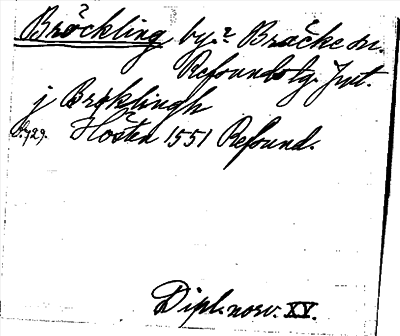 Bröckling by? Bräcke sn.
Refsunds tg. Jmt.
j Brøklingh
S. 729. Hösten 1551 Refsund.
Dipl. norv. XV.